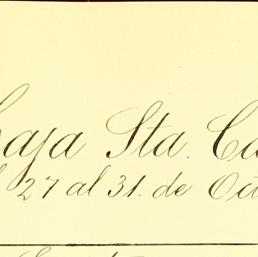 Caja Sta. Ca
27 al 31. de Oct